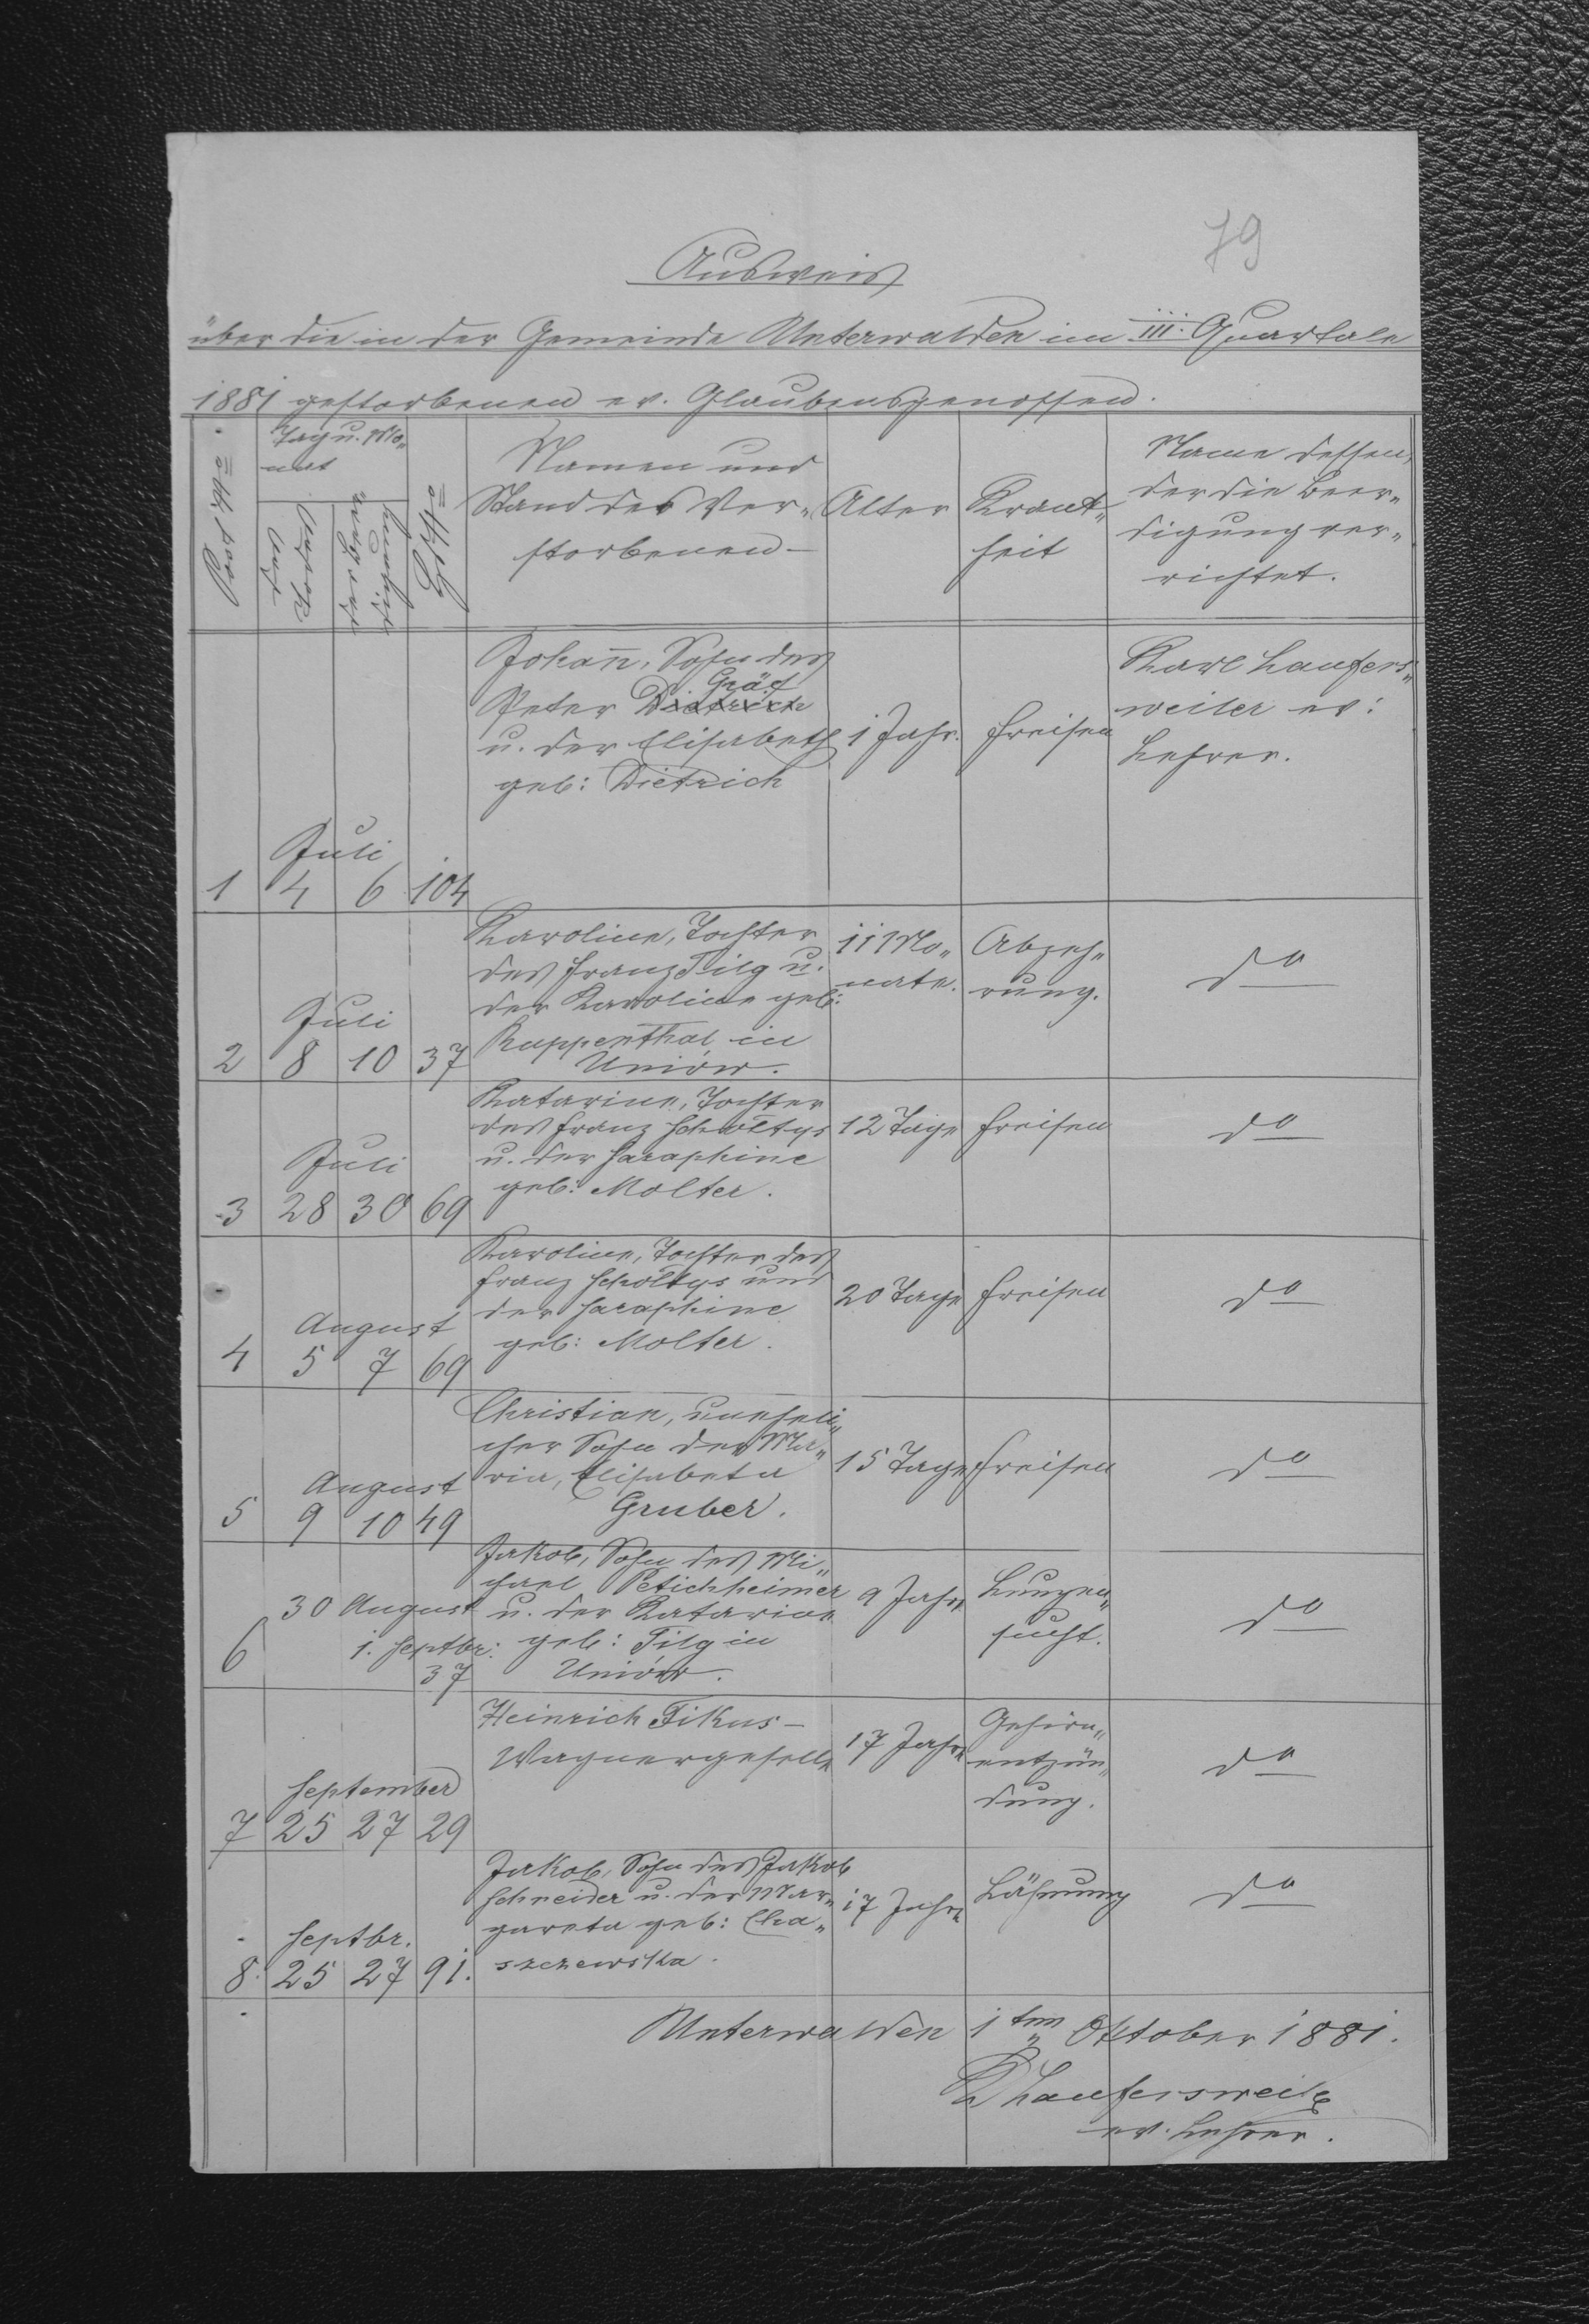 79
Ausweis
über die in der Gemeinde Unterwalden im III. Quartale
1881 gestorbenen ev. Glaubensgenossen.
Post No
Tag u. Mo„
nat
des
Todes
der Beer„
digung
H. No
Namen und
Stand des Ver„
storbenen
Alter
Krank„
heit
Name dessen,
der die Beer„
digung ver„
richtet.
Johann, Sohn des
Gräf
Peter Dietrich
u. der Elisabeth
geb: Dietrich
1 Jahr.
Freisen
Karl Laufers„
weiler ev:
Lehrer.
Juli
1 4 6 104
Karoline, Tochter
des Franz Tilg u.
der Karoline geb:
Kuppenthal in
Uniów.
11 Mo„
nate.
Abzeh„
rung.
do
Juli
2 8 10 37
Katarine, Tochter
des Franz Scholtys
u. der Saraphine
geb: Molter.
12 Tage
Freisen
do
Juli
3 28 30 69
Karoline, Tochter des
Franz Scholtys und
der Saraphine
geb: Molter.
20 Tage
Freisen
do
August
4 5 7 69
Christian, uneheli„
cher Sohn der Ma„
ria, Elisabeta
Gruber.
15 Tage
Freisen
do
August
5 9 10 49
Jakob, Sohn des Mi„
chael Petichheimer
u. der Katarina
geb: Tilg in
Uniów.
9 Jahre
Lungen„
sucht.
do
30 August
1. Septbr:
6 37
Heinrich Fikus –
Wagnergeselle
17 Jahre
Gehirn„
entzün„
dung.
do
September
7 25 27 29
Jakob, Sohn des Jakob
Schneider u. der Mar„
gareta geb: Cha„
szczewska.
17 Jahre
Lähmung
do
Septbr.
8. 25 27 91.
Unterwalden 1ten Oktober 1881.
K Laufersweiler
ev. Lehrer.